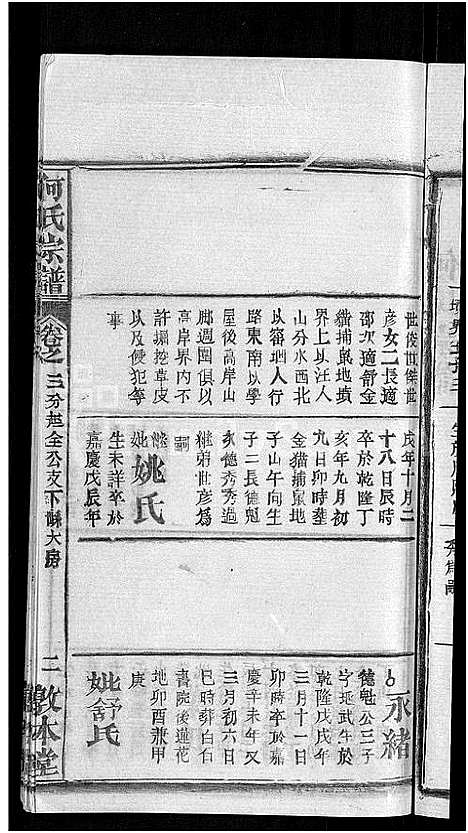 世俊世傑世
彥女二長適
邵次適舒金
貓捕鼠地墳
界上以汪人
山分水西北
以審垇人行
路東南以學
屋後高岸山
腳週圍俱以
高岸界內不
許堀挖草皮
以及侵犯等
事
戌年十月二
十八日辰時
卒於乾隆丁
亥年九月初
九日卯時塟
金貓捕鼠地
子山午向生
子二長德魁
次德秀秀過
繼弟世彥為
嗣
繼妣姚氏
生未詳卒於
嘉慶戊辰年
永緒
德魁公三子
字延武生於
乾隆戊戌年
三月十一日
卯時卒於嘉
慶辛未年又
三月初六日
巳時葬白白
書院後蓮花
地卯酉兼甲
庚
妣舒氏
何氏宗譜
卷之三
分起全公支下穌大房
二
敦本堂